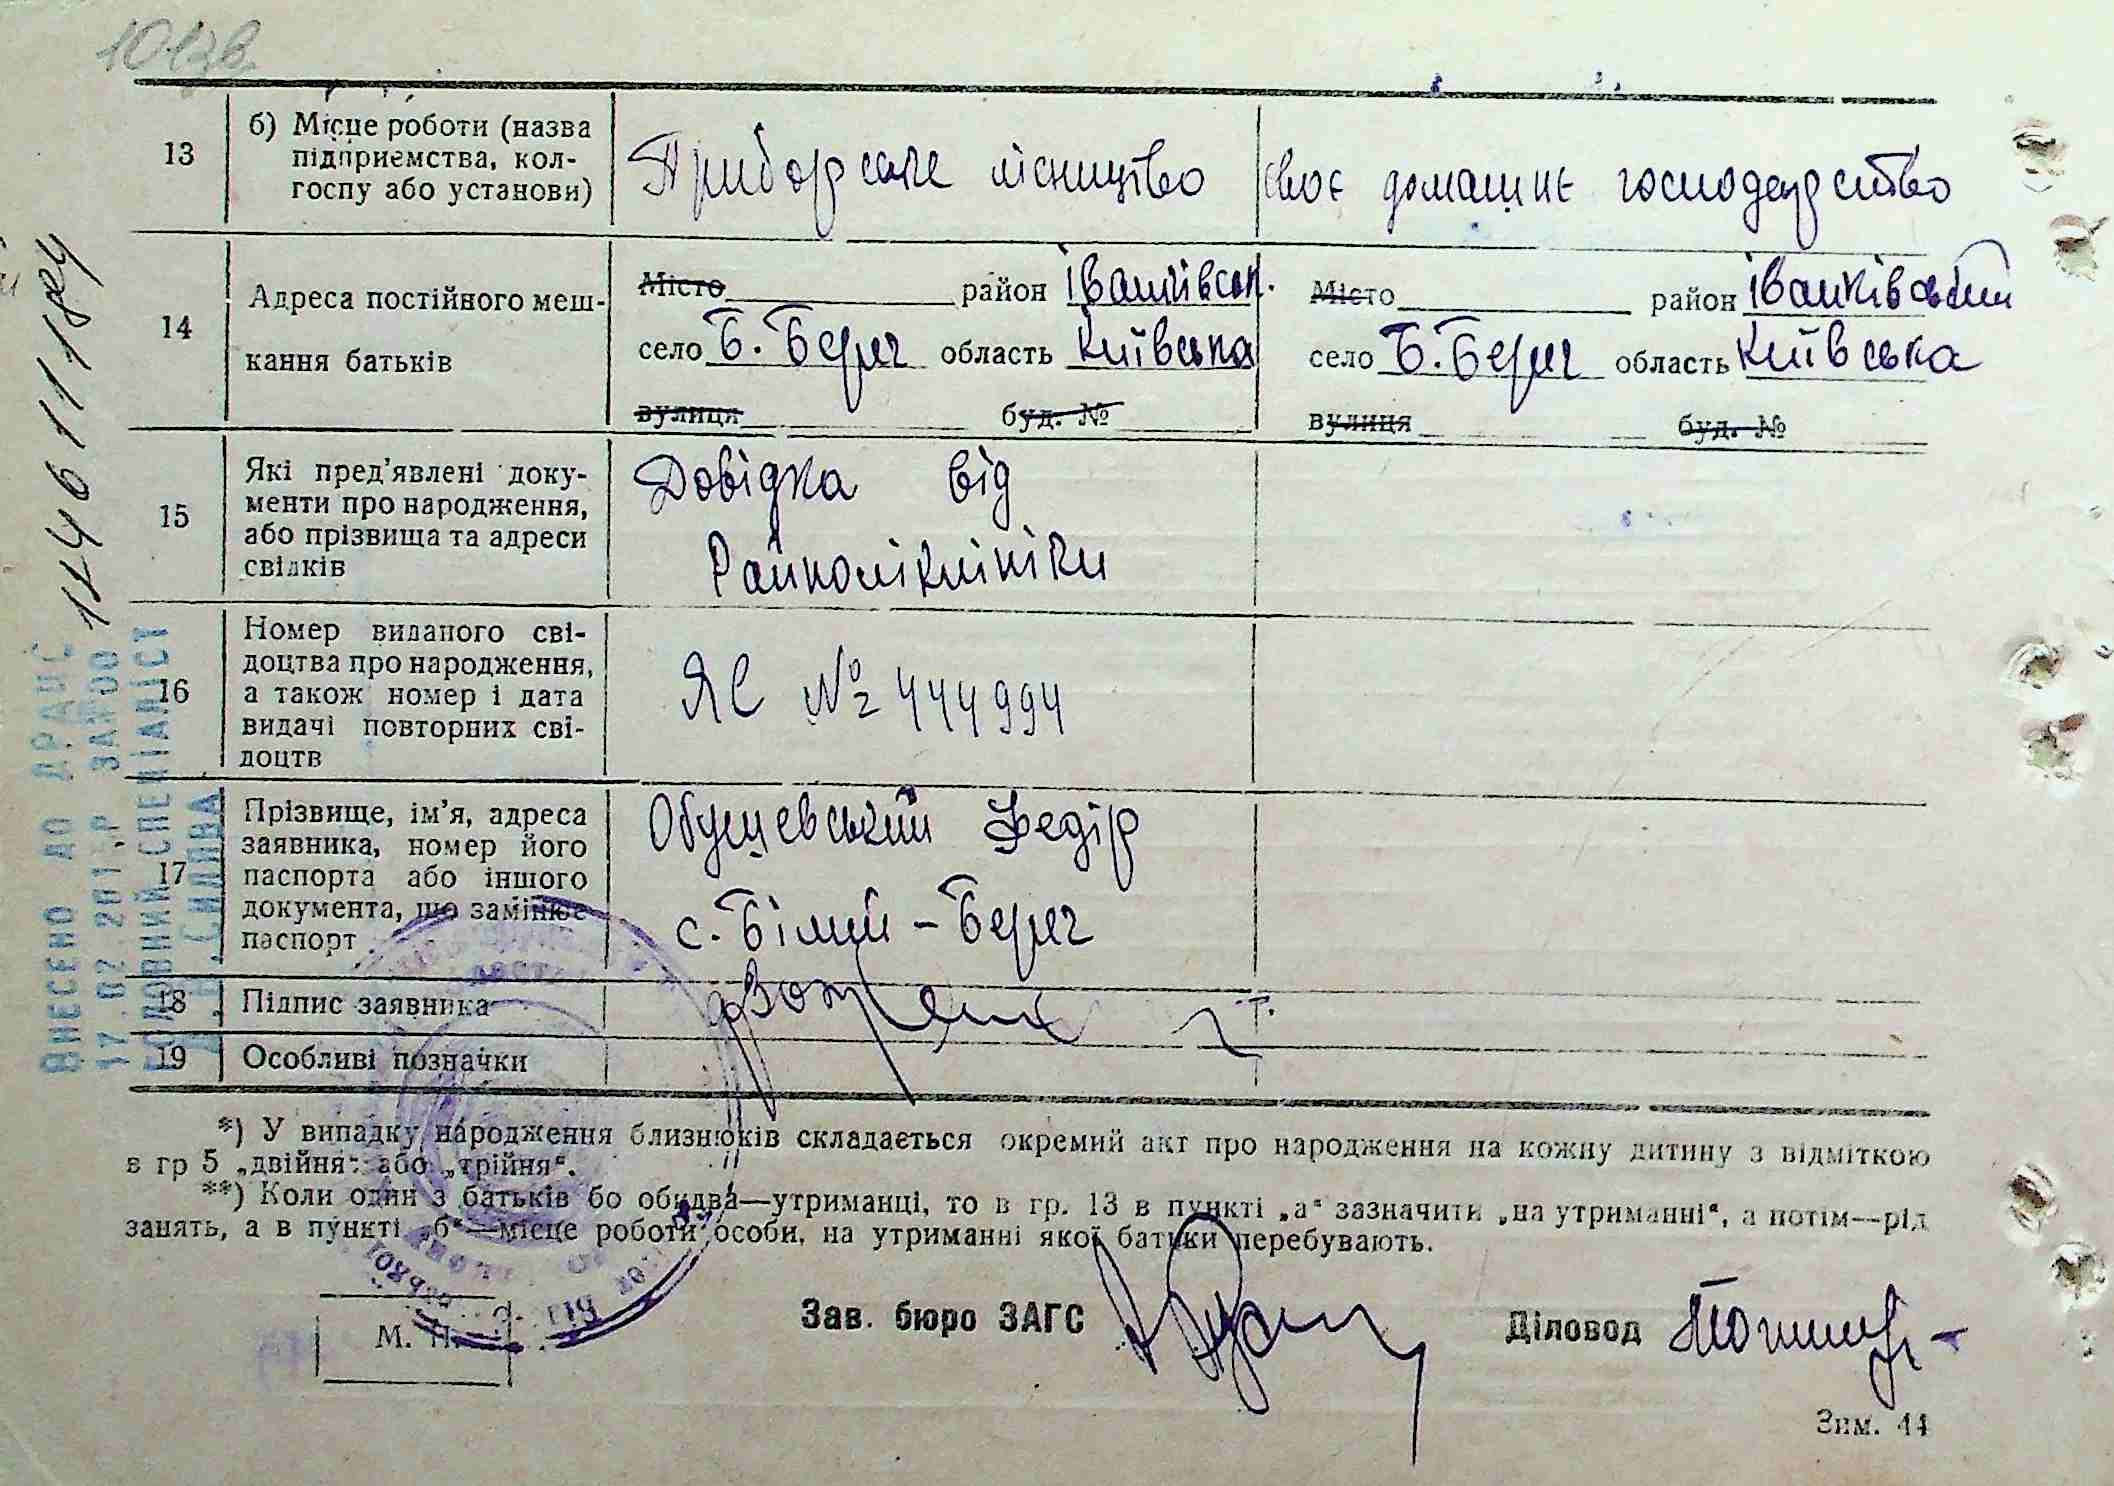 101зв.
13
б) Місце роботи (назва
підприємства, кол-
госпу або установи)
Приборське лісництво
своє домашнє господарство
14
Адреса постійного меш-
кання батьків
Місто район Іванківськ.
село Б. Берег область Київська
вулиця буд. №
Місто район Іванківський
село Б. Берег область Київська
вулиця буд. №
15
Які пред'явлені доку-
менти про народження,
або прізвища та адреси
свідків
Довідка від
Райполіклініки
16
Номер виданого сві-
доцтва про народження,
а також номер і дата
видачі повторних сві-
доцтв
ЯС № 444994
17
Прізвище, ім'я, адреса
заявника, номер його
паспорта або іншого
документа, що замінює
паспорт
Федір
с. Білий-Берег
18
Підпис заявника
19
Особливі позначки
*) У випадку народження близнюків складається окремий акт про народження на кожну дитину з відміткою
в гр 5 „двійня“ або „трійня“.
**) Коли один з батьків бо обидва—утриманці, то в гр. 13 в пункті „а“ зазначити „на утриманні“, а потім—рід
занять, а в пункті „б“—місце роботи особи, на утриманні якої батьки перебувають.
М. П.
Зав. бюро ЗАГС
Діловод
Зим. 44
ВНЕСЕНО ДО ДРАЦС
17.02.201 Р
ГОЛОВНИЙ СПЕЦІАЛІСТ
СИЛЯВА